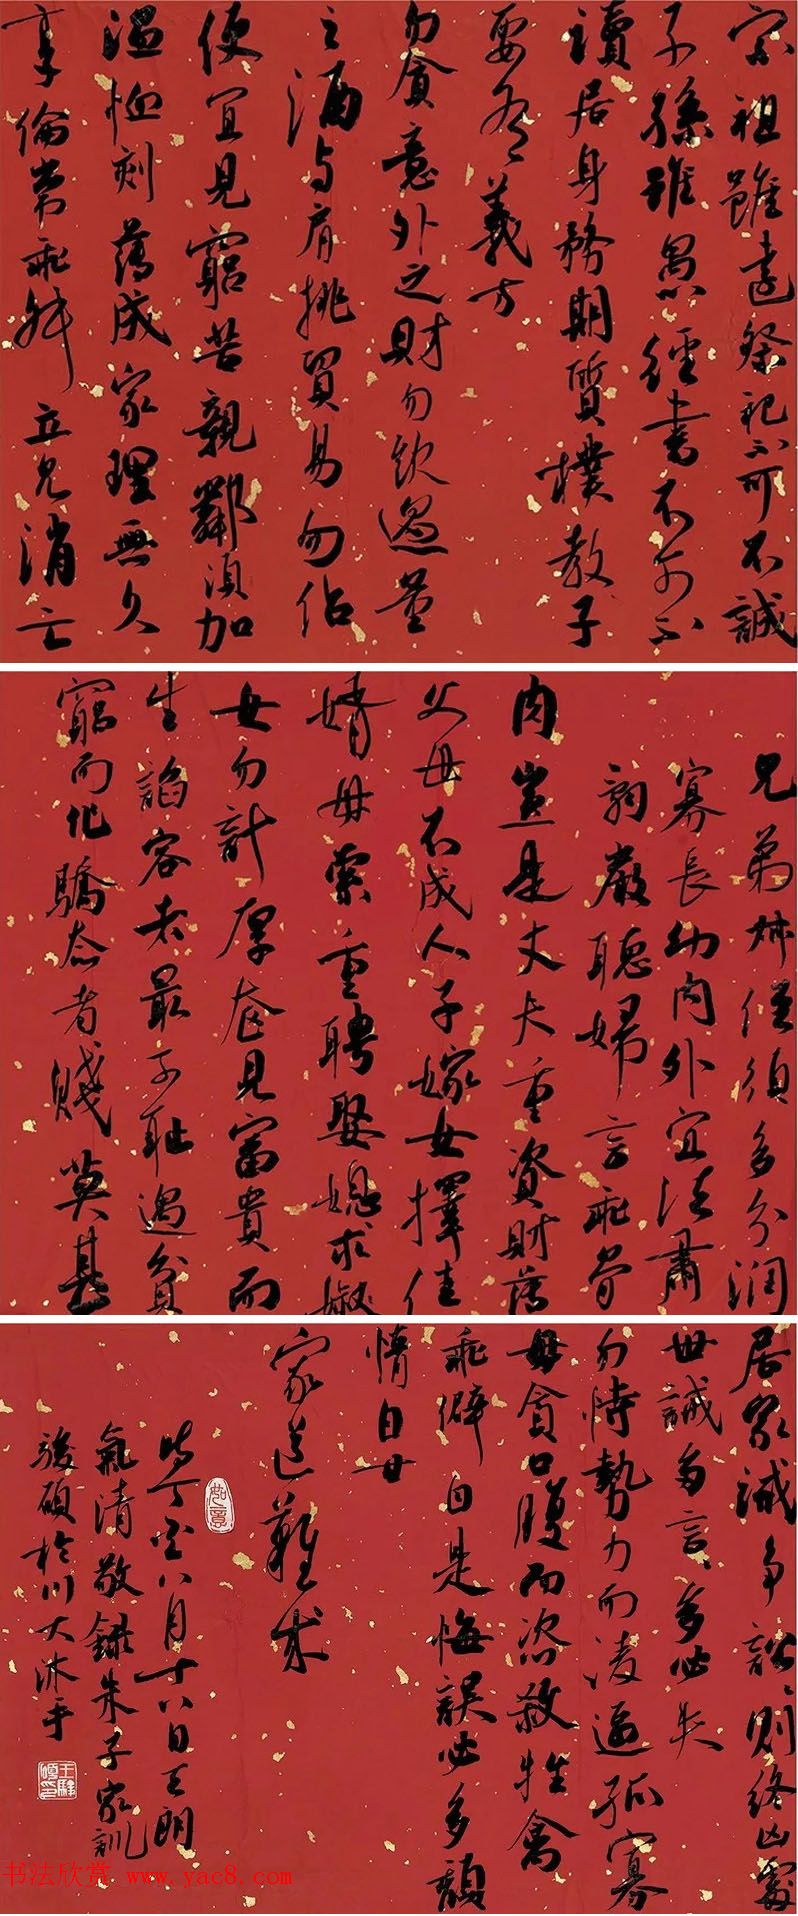 宗祖雖遠祭祀不可不誠
子孫雖愚經書不可不
讀居身務期質樸教子
要有義方
勿貪意外之財勿飲過量
之酒与肩挑貿易勿佔
便宜見窮苦親鄰須加
溫恤刻薄成家理無久
享倫常乖舛立見消亡
兄弟叔侄須多分潤
寡長幼內外宜法肅
辭嚴聽婦言乖骨
肉豈是丈夫重資財薄
父母不成人子嫁女擇佳
婿毋索重聘娶媳求淑
女勿計厚奩見富貴而
生諂容者最可恥遇貧
窮而作驕態者賤莫甚
居家誡爭訟訟則終凶處
世誡多言言多必失
勿恃勢力而凌逼孤寡
毋貪口腹而恣殺牲禽
乖僻自是悔誤必多頹
惰自甘
家道難成
如意
八月十八日天朗
氣清敬錄朱子家訓
駿碩於川大沐手
书法欣赏 www.yac8.com